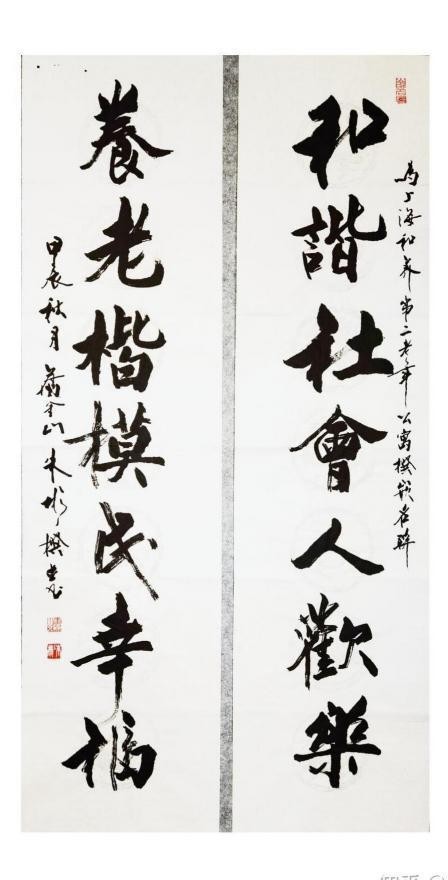 為上海和養第二老年公寓撰嵌名聯
和諧社會人歡樂
養老楷模民幸福
甲辰秋月舊金山朱撰書